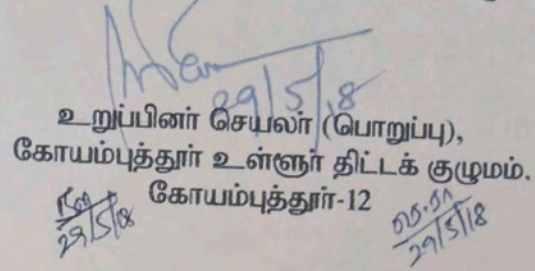 29/5/18
உறுப்பினர் செயலர் (பொறுப்பு),
கோயம்புத்தூர் உள்ளூர் திட்டக் குழுமம்.
கோயம்புத்தூர்-12
29/5/18
29/5/18